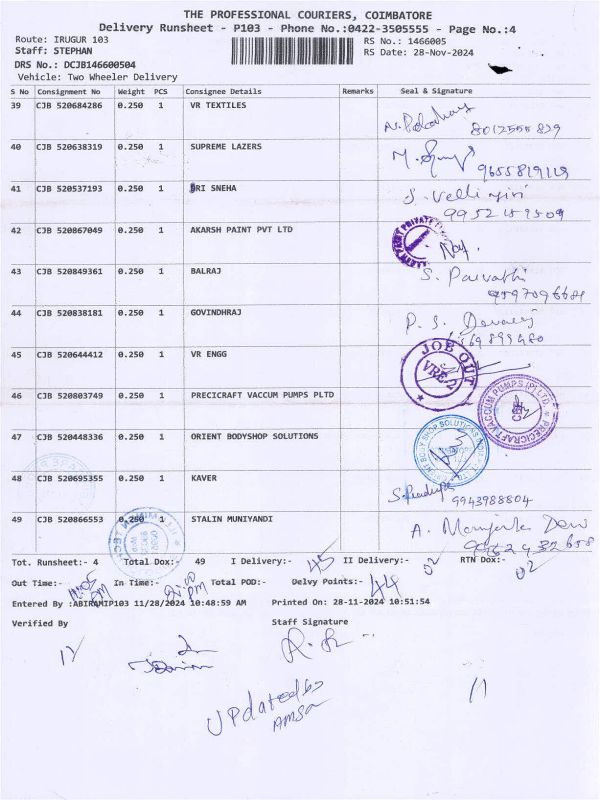 THE PROFESSIONAL COURIERS, COIMBATORE
Delivery Runsheet - P103 - Phone No.:0422-3505555 - Page No.:4
Route: IRUGUR 103 RS No.: 1466005
Staff: STEPHAN RS Date: 28-Nov-2024
DRS No.: DCJB146600504
Vehicle: Two Wheeler Delivery
S No Consignment No Weight PCS Consignee Details Remarks Seal & Signature
39 CJB 520684286 0.250 1 VR TEXTILES
40 CJB 520638319 0.250 1 SUPREME LAZERS
9655819119
41 CJB 520537193 0.250 1 SRI SNEHA
42 CJB 520867049 0.250 1 AKARSH PAINT PVT LTD
43 CJB 520849361 0.250 1 BALRAJ
S. Parvathi
44 CJB 520838181 0.250 1 GOVINDHRAJ
45 CJB 520644412 0.250 1 VR ENGG
JOB OUT
VRE-2
46 CJB 520803749 0.250 1 PRECICRAFT VACCUM PUMPS PLTD
PRECICRAFT VACCUM PUMPS (P) LTD
47 CJB 520448336 0.250 1 ORIENT BODYSHOP SOLUTIONS
48 CJB 520695355 0.250 1 KAVER
9943988804
49 CJB 520866553 0.250 1 STALIN MUNIYANDI
Tot. Runsheet:- 4 Total Dox:- 49 I Delivery:- 45 II Delivery:- 02 RTN Dox:- 02
Out Time:- In Time:- Total POD:- Delvy Points:- 44
Entered By :ABIRAMIP103 11/28/2024 10:48:59 AM Printed On: 28-11-2024 10:51:54
Verified By Staff Signature
Updated by
AMSA